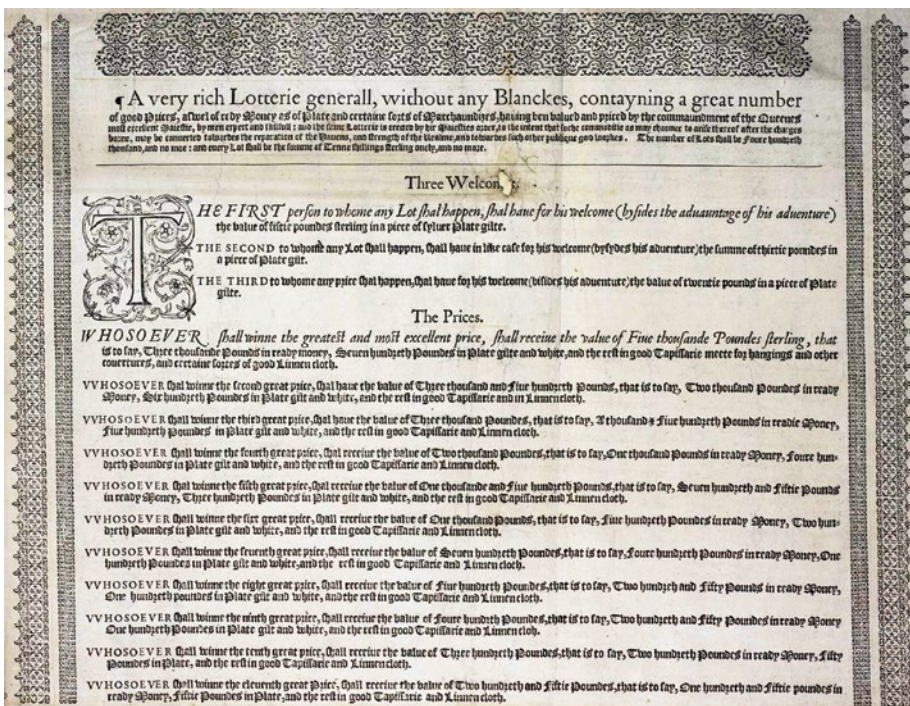 ¶ A very rich Lotterie generall, without any Blanckes, contayning a great number
of good Prices, aswel of redy Money as of Plate and certaine sorts of Marchaundizes, having ben valued and priced by the commaundment of the Queenes
most excellent Maiestie, by men expert and skilfull: and the same Lotterie is erected by her Maiesties order, to the intent that such commoditie as may chaunce to arise therof after the charges
borne, may be converted towardes the reparation of the Havens, and strength of the Realme, and towardes such other publique good workes. The number of Lots shall be Foure hundreth
thousand, and no moe: and every Lot shall be the summe of Tenne shillings sterling onely, and no more.
Three
THE FIRST person to whome any Lot shal happen, shal haue for his welcome (bysides the aduauntage of his aduenture)
the value of fiftie poundes sterling in a piece of sylver Plate gilte.
THE SECOND to whome any Lot shall happen, shall haue in like case for his welcome (bysydes his aduenture) the summe of thirtie poundes in
a piece of Plate gilt.
THE THIRD to whome any price shal happen, shal haue for his welcome (bisides his aduenture) the value of twentie pounds in a piece of Plate
gilte.
The Prices.
WHOSOEVER shall winne the greatest and most excellent price, shall receiue the value of Fiue thousande Poundes sterling, that
is to say, Three thousande Pounds in ready money, Seuen hundreth Poundes in Plate gilte and white, and the rest in good Tapissarie meete for hangings and other
couertures, and certaine sortes of good Linnen cloth.
VVHOSOEVER shal winne the second great price, shal haue the value of Three thousand and Fiue hundreth Pounds, that is to say, Two thousand Poundes in ready
Money, Six hundreth Poundes in Plate gilt and white, and the rest in good Tapissarie and in Linnen cloth.
VVHOSOEVER shall winne the third great price, shal haue the value of Three thousand Poundes, that is to say, A thousand & Fiue hundreth Pounds in readie Money,
Fiue hundreth Poundes in Plate gilt and white, and the rest in good Tapissarie and Linnen cloth.
VVHOSOEVER shall winne the fourth great price, shal receiue the value of Two thousand Poundes, that is to say, One thousand Pounds in ready Money, Foure hun-
dreth Poundes in Plate gilt and white, and the rest in good Tapissarie and Linnen cloth.
VVHOSOEVER shal winne the fifth great price, shal receiue the value of One thousand and Fiue hundreth Poundes, that is to say, Seuen hundreth and Fiftie Pounds
in ready Money, Three hundreth Poundes in Plate gilt and white, and the rest in good Tapissarie and Linnen cloth.
VVHOSOEVER shall winne the sixt great price, shall receiue the value of One thousand Pounds, that is to say, Fiue hundreth Pounds in ready Money, Two hun-
dreth Poundes in Plate gilt and white, and the rest in good Tapissarie and Linnen cloth.
VVHOSOEVER shall winne the seuenth great price, shall receiue the value of Seuen hundreth Poundes, that is to say, Foure hundreth Pounds in ready Money, One
hundreth Poundes in Plate gilt and white, and the rest in good Tapissarie and Linnen cloth.
VVHOSOEVER shall winne the eight great price, shall receiue the value of Fiue hundreth Poundes, that is to say, Two hundreth and Fifty Pounds in ready Money,
One hundreth poundes in Plate gilt and white, and the rest in good Tapissarie and Linnen cloth.
VVHOSOEVER shall winne the ninth great price, shall receiue the value of Foure hundreth Poundes, that is to say, Two hundreth and Fifty Pounds in ready Money
One hundreth Poundes in Plate gilt and white, and the rest in good Tapissarie and Linnen cloth.
VVHOSOEVER shall winne the tenth great price, shall receiue the value of Three hundreth Poundes, that is to say, Two hundreth Pounds in ready Money, Fifty
Poundes in Plate, and the rest in good Tapissarie and Linnen cloth.
VVHOSOEVER shall winne the eleuenth great Price, shall receiue the value of Two hundreth and Fiftie Poundes, that is to say, One hundreth and Fiftie poundes in
ready Money, Fiftie Poundes in Plate, and the rest in good Tapissarie and Linnen cloth.